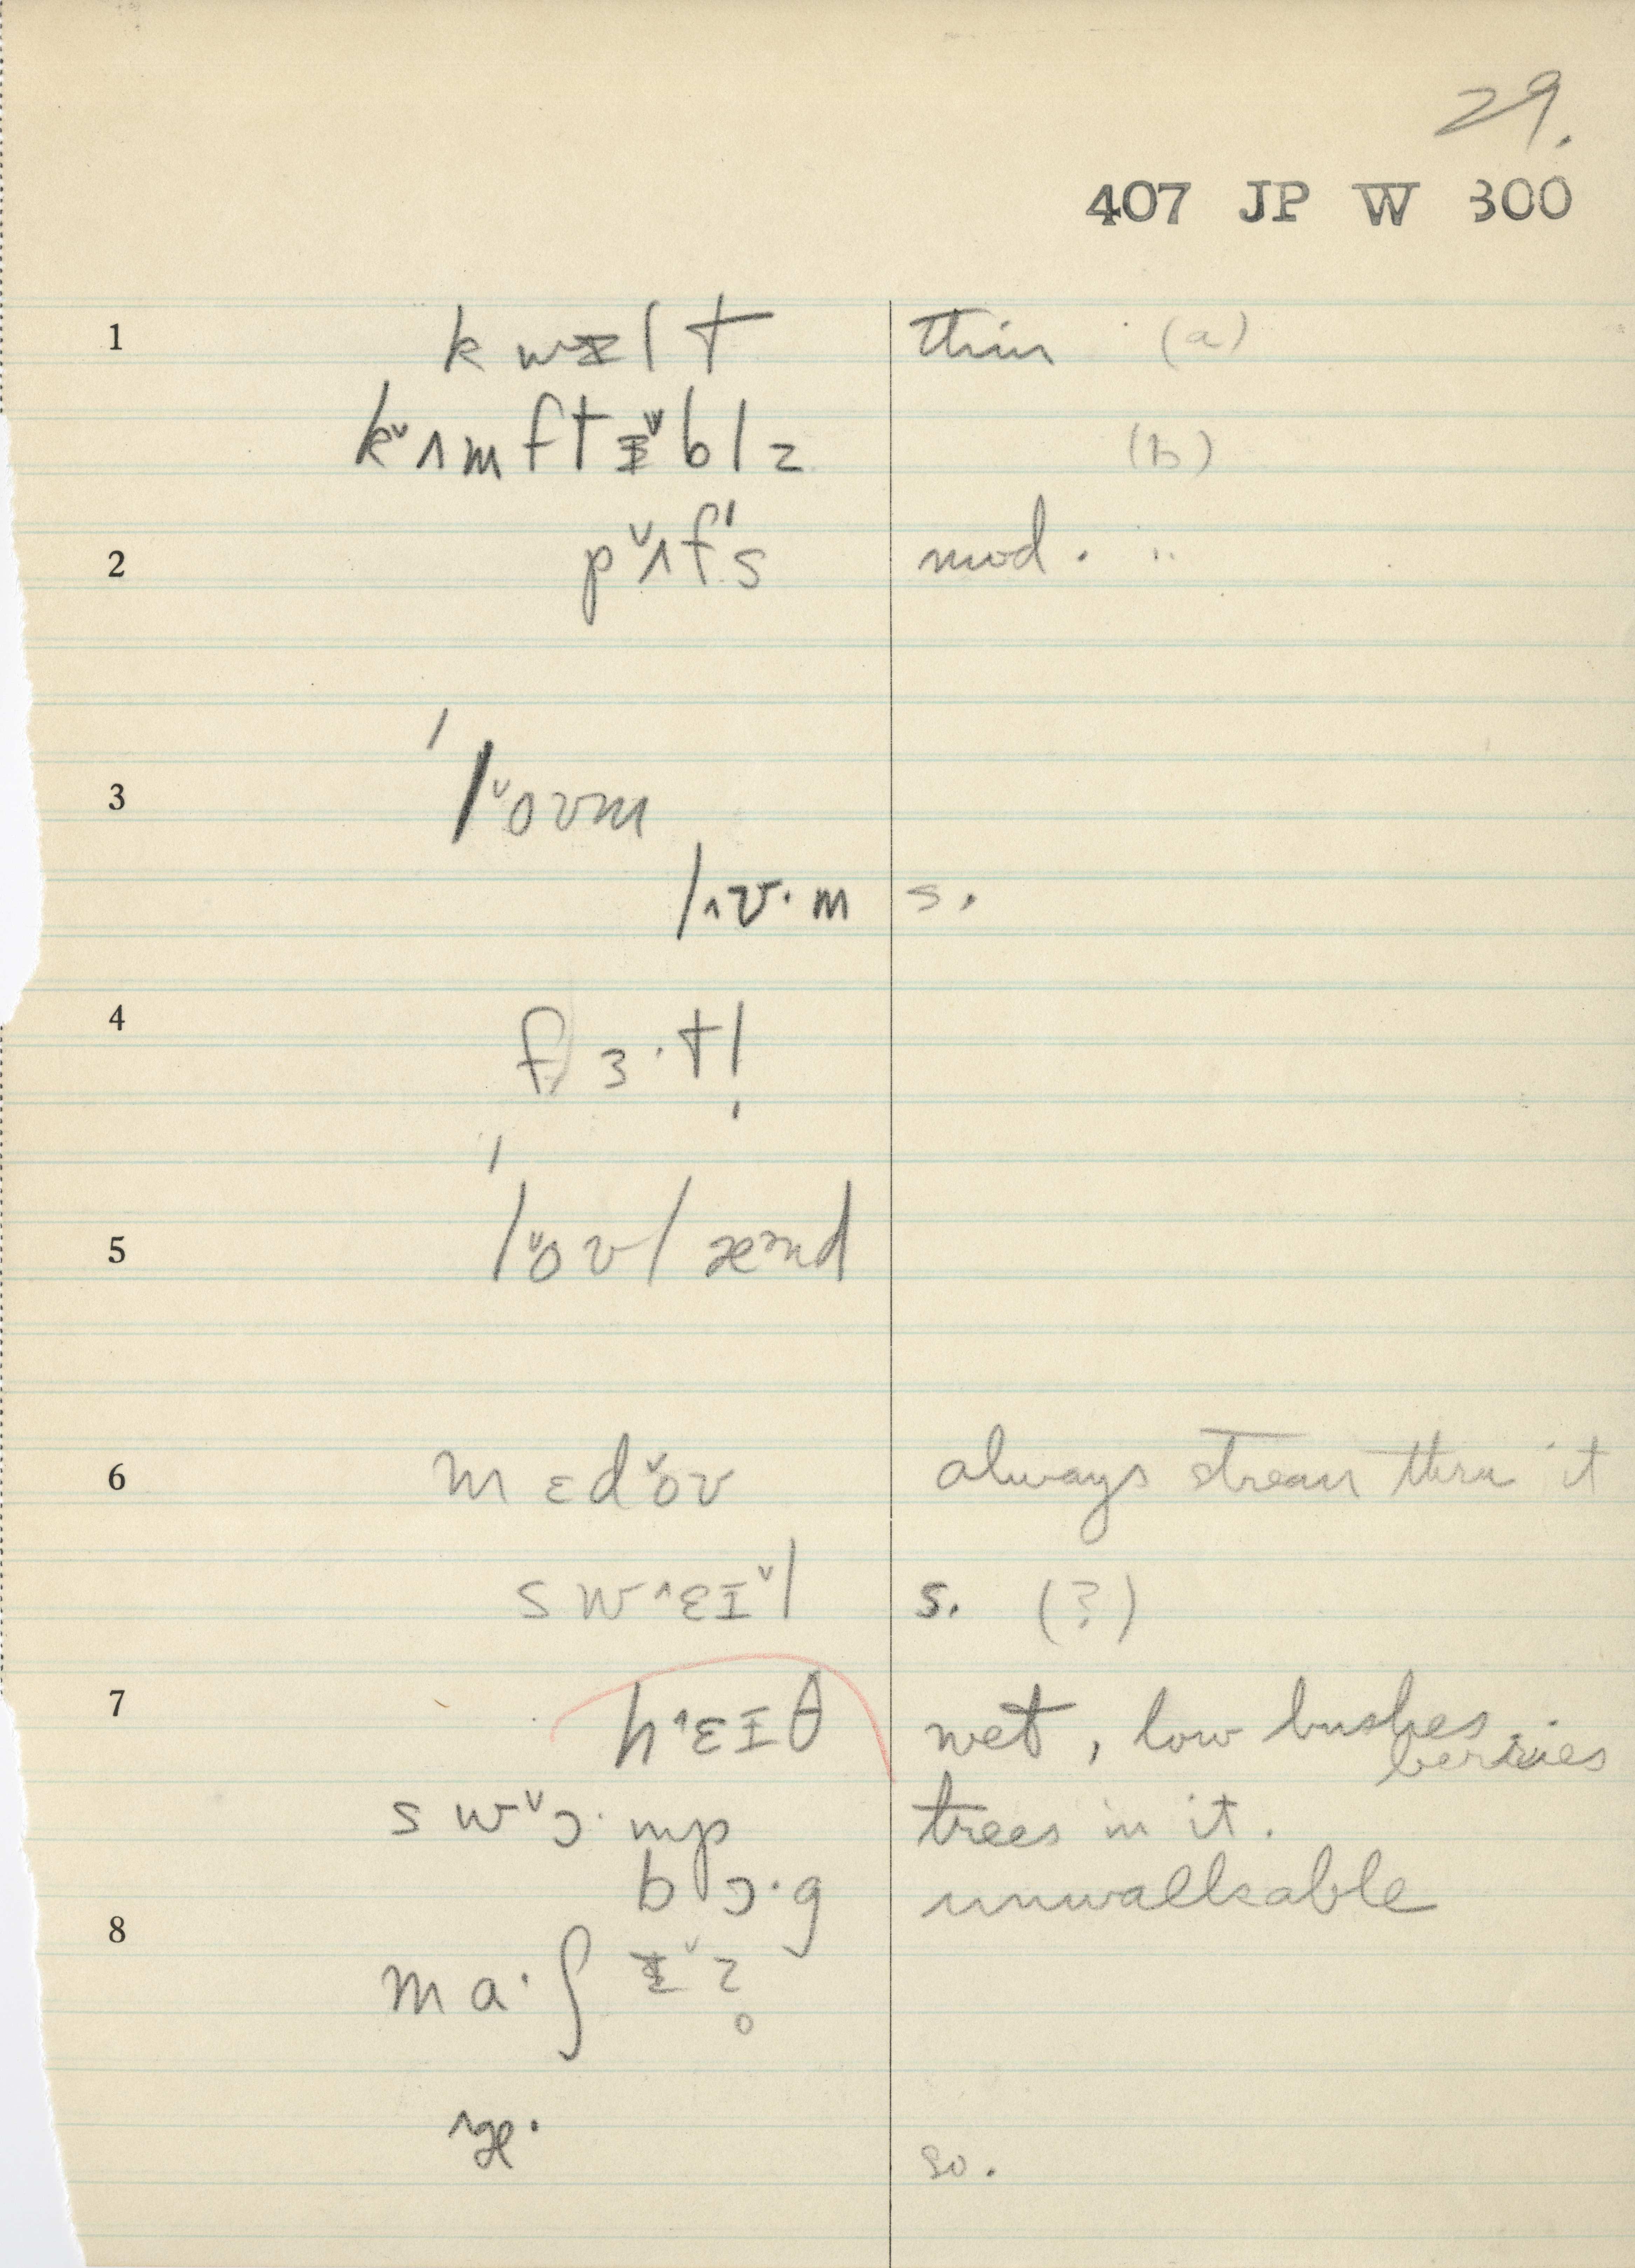 29.
407 JP W 300
1 kwᵻlt thin (a)
k˅ʌmftᵻ˅blz (b)
2 p˅ʌf's mod. "
3 'l˅oʊm
lʌʊ·m s.
4 fɜ·tl̩
5 'l˅oʊlænd
6 mɛd˅oʊ always stream thru it
sw^ɛɪ˅l s. (?)
7 h^ɛɪθ wet, low bushes, berries
sw˅ɔ·mp trees in it.
bɔ·g unwalkable
8 ma·ʃᵻ˅z̥
^æ· so.